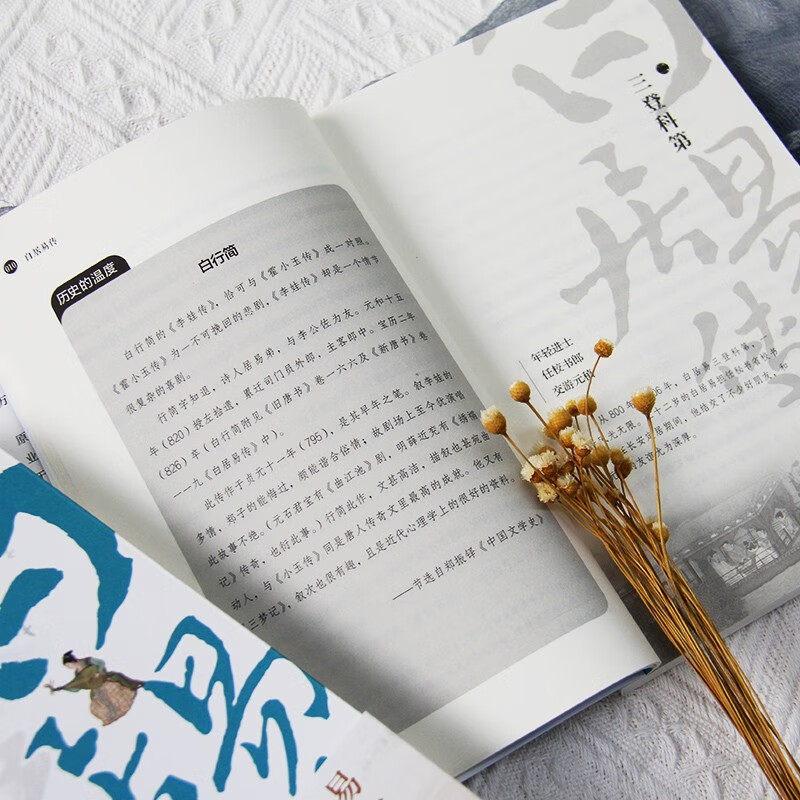 010 白居易传
历史的温度
白行简
白行简的《李娃传》，恰可与《霍小玉传》成一对照。
《霍小玉传》为一不可挽回的悲剧，《李娃传》却是一个情节
很复杂的喜剧。
行简字知退，诗人居易弟，与李公佐为友。元和十五
年（820）授左拾遗，累迁司门员外郎，主客郎中。宝历二年
（826）年（白行简附见《旧唐书》卷一六六及《新唐书》卷
一一九《白居易传》中）。
此传作于贞元十一年（795），是其早年之笔。叙李娃的
多情，郑子的能悔过，颇能谐合俗情，故剧场上至今犹演唱
此故事不绝。（元石君宝有《曲江池》剧，明薛近兖有《绣襦
记》传奇，也衍此事。）行简此作，文甚高洁，描叙也甚宛曲
动人，与《小玉传》同是唐人传奇文里最高的成就。他又有
《三梦记》，叙次也很有趣，且是近代心理学上的很好的资料。
——节选自郑振铎《中国文学史》
三登科第
白居易传
年轻进士
任校书郎
交游元稹
从800年
6年，白居易三登科第，
光无限。
十二岁的白居易担任秘书省校书
长安居住期间，他结交了不少好朋友，和
的友谊尤为深厚。
原
业
白居易
易